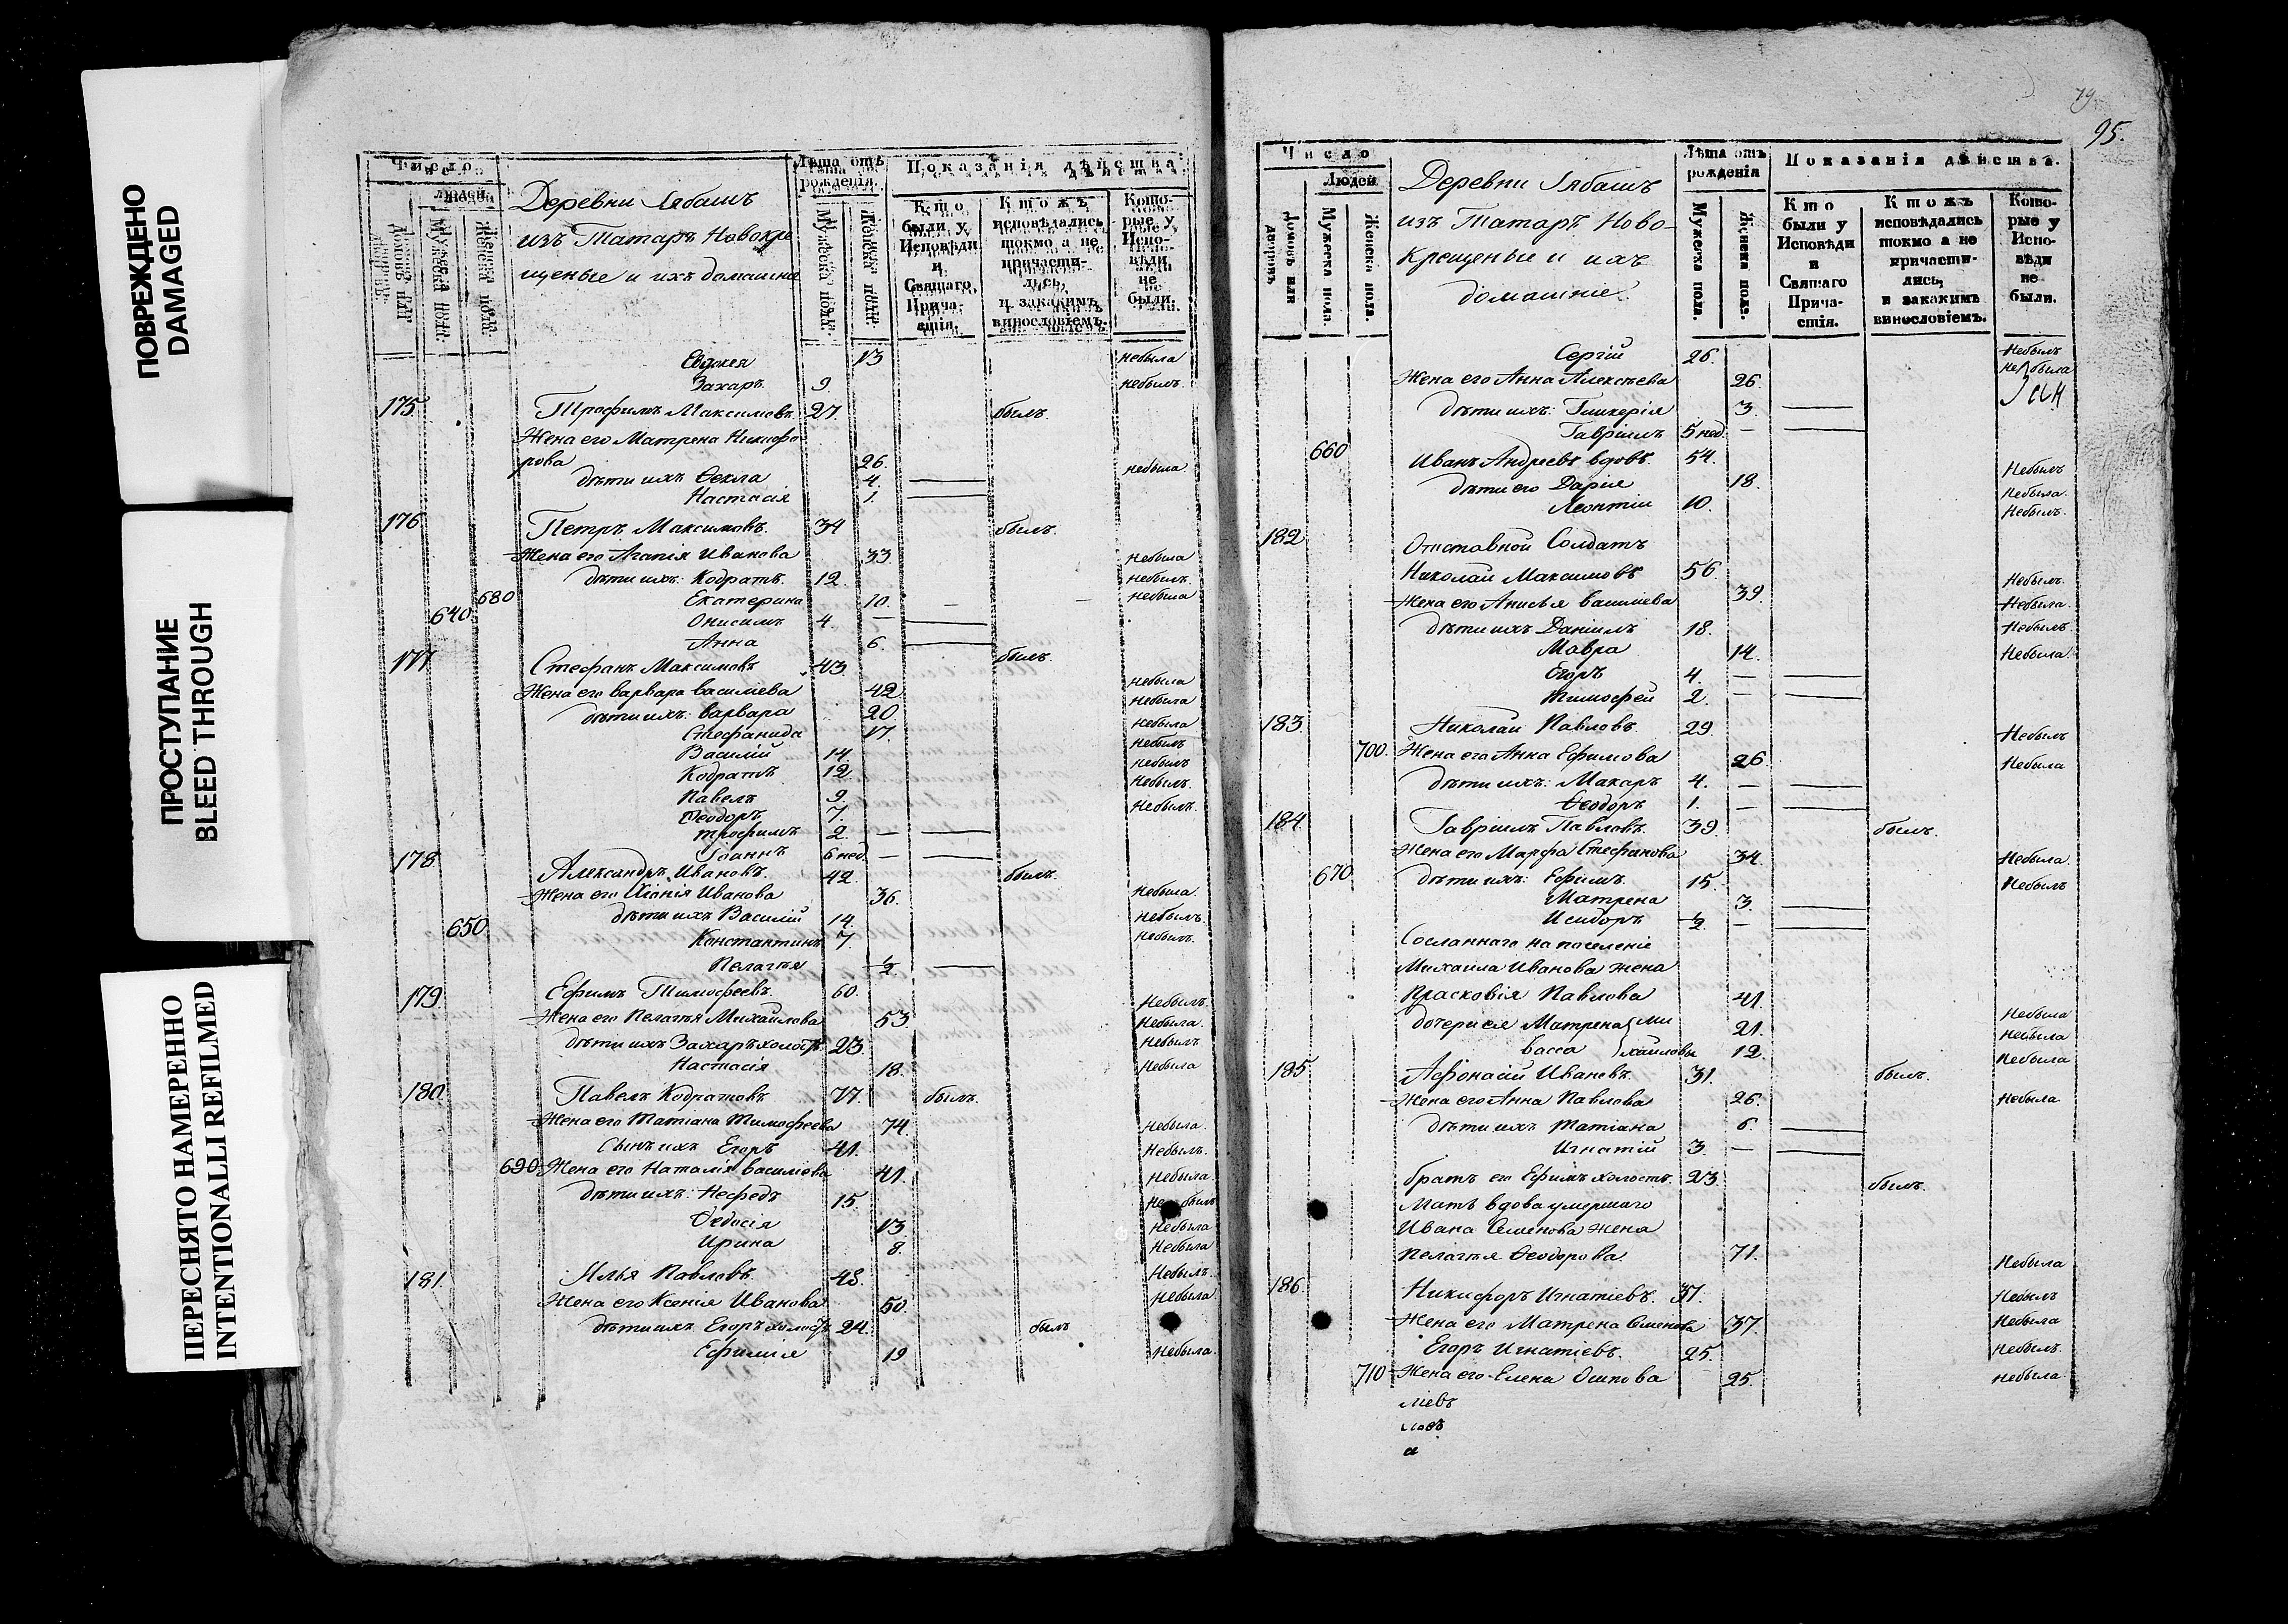 ПОВРЕЖДЕНО
DAMAGED
ПРОСТУПАНИЕ
BLEED THROUGH
ПЕРЕСНЯТО НАМЕРЕННО
INTENTIONALLI REFILMED
Число
людей
Домовъ или дворовъ.
Мужеска пола.
Женска пола.
Деревни Лябашъ
изъ Татаръ Новокре
щеные и ихъ домашніе
Лѣта отъ рожденія.
Мужеска пола.
Женска пола.
Показанія дѣйства.
Кто были у Исповѣди и Святаго Причастія.
Ктожъ исповѣдались токмо а не причастились, и закакимъ винословіемъ.
Которые у Исповѣди не были.
Евдокея 13 небыла
Захаръ 9 небылъ
175 Трофимъ Максимовъ 27 былъ.
Жена его Матрена Никифо
рова 26. небыла
дѣти ихъ Ѳекла 4.
Настасія 1.
176 Петръ Максимовъ 34 былъ.
Жена его Агапія Иванова 33 небыла
дѣти ихъ: Кодратъ. 12. небылъ.
680 Екатерина 10. небыла
640 Онисимъ 4.
Анна 6.
177 Стефанъ Максимовъ 43. былъ.
Жена его варвара васильева 42 небыла
дѣти ихъ: варвара 20 небыла
Стефанида 17. небыла
Василій 14. небылъ
Кодратъ 12 небылъ
Павелъ 9. небылъ.
Ѳеодоръ 7. небылъ.
трофимъ 2.
Іоаннъ 6 нед.
178. Александръ Ивановъ. 42. былъ.
Жена его Хіонія Иванова 36. небыла.
дѣти ихъ Василій 14. небылъ.
650 Константинъ 7. небылъ.
Пелагѣя 1/2
179. Ефимъ Тимофеевъ. 60. небылъ.
Жена его Пелагѣя Михайлова 53. небыла.
дѣти ихъ Захаръ холостъ 23. небылъ
Настасія 18. небыла
180. Павелъ Кодратовъ 77. былъ.
Жена его Татіана Тимофеева 74. небыла.
Сынъ ихъ Егоръ 41. небылъ.
690 Жена его Наталія васильева 41. небыла
дѣти ихъ: Нефедъ 15. не былъ
Ѳедосія 13 небыла
Ирина 8 небыла
181. Илья Павловъ. 48. небылъ.
Жена его Ксенія Иванова 50. небыла.
дѣти ихъ Егоръ холостъ 24. былъ
Ефимія 19 небыла.
79
95.
Число
Людей
Домовъ или дворовъ.
Мужеска пола.
Женска пола.
Деревни Лябашъ
изъ Татаръ Ново-
Крещеные и ихъ
домашніе.
Лѣта отъ рожденія
Мужеска пола.
Женска пола.
Показанія дѣйства.
Кто были у Исповѣди и Святаго Причастія.
Ктожъ исповѣдались токмо а не причастились, и закакимъ винословіемъ.
Которые у Исповѣди не были.
Сергій 26. небылъ
Жена его Анна Алексѣева 26. не была
дѣти ихъ: Гликерія 3.
Гавріилъ 5 нед.
660 Иванъ Андреевъ вдовъ. 54. Небылъ
дѣти его Дарія 18. Небыла.
Леонтій 10. Небылъ.
182 Отставной Солдатъ
Николай Максимовъ 56. Небылъ.
Жена его Анисья васильева 39. Небыла.
дѣти ихъ Даніилъ 18. Небылъ.
Мавра 14. Небыла.
Егоръ 4.
Тимофей 2.
183. Николай Павловъ. 29. Небылъ
700. Жена его Анна Ефимова 26. Небыла
дѣти ихъ: Макаръ 4.
Ѳеодоръ 1.
184. Гавріилъ Павловъ. 39. былъ.
Жена его Марфа Стефанова 34. Небыла.
670 дѣти ихъ: Ефимъ. 15. Небылъ
Матрена 3.
Исидоръ 1/2
Сосланнаго на поселеніе
Михаила Иванова жена
Прасковія Павлова 41. Небыла
дочери ея Матрена ми 21. небыла
васса хаиловы 12. Небыла
185. Афонасій Ивановъ. 31. былъ.
Жена его Анна Павлова 26. Небыла
дѣти ихъ Татіана 6.
Игнатій 3.
братъ его Ефимъ холостъ. 23. былъ.
Мать вдова умершаго
Ивана Семенова жена
Пелагѣя Ѳеодорова. 71. Небыла
186. Никифоръ Игнатіевъ. 37. Небылъ
Жена его Матрена Семенова 37. Небыла
Егоръ Игнатіевъ. 25. Небылъ.
710 Жена его Елена Осипова 25. небыла